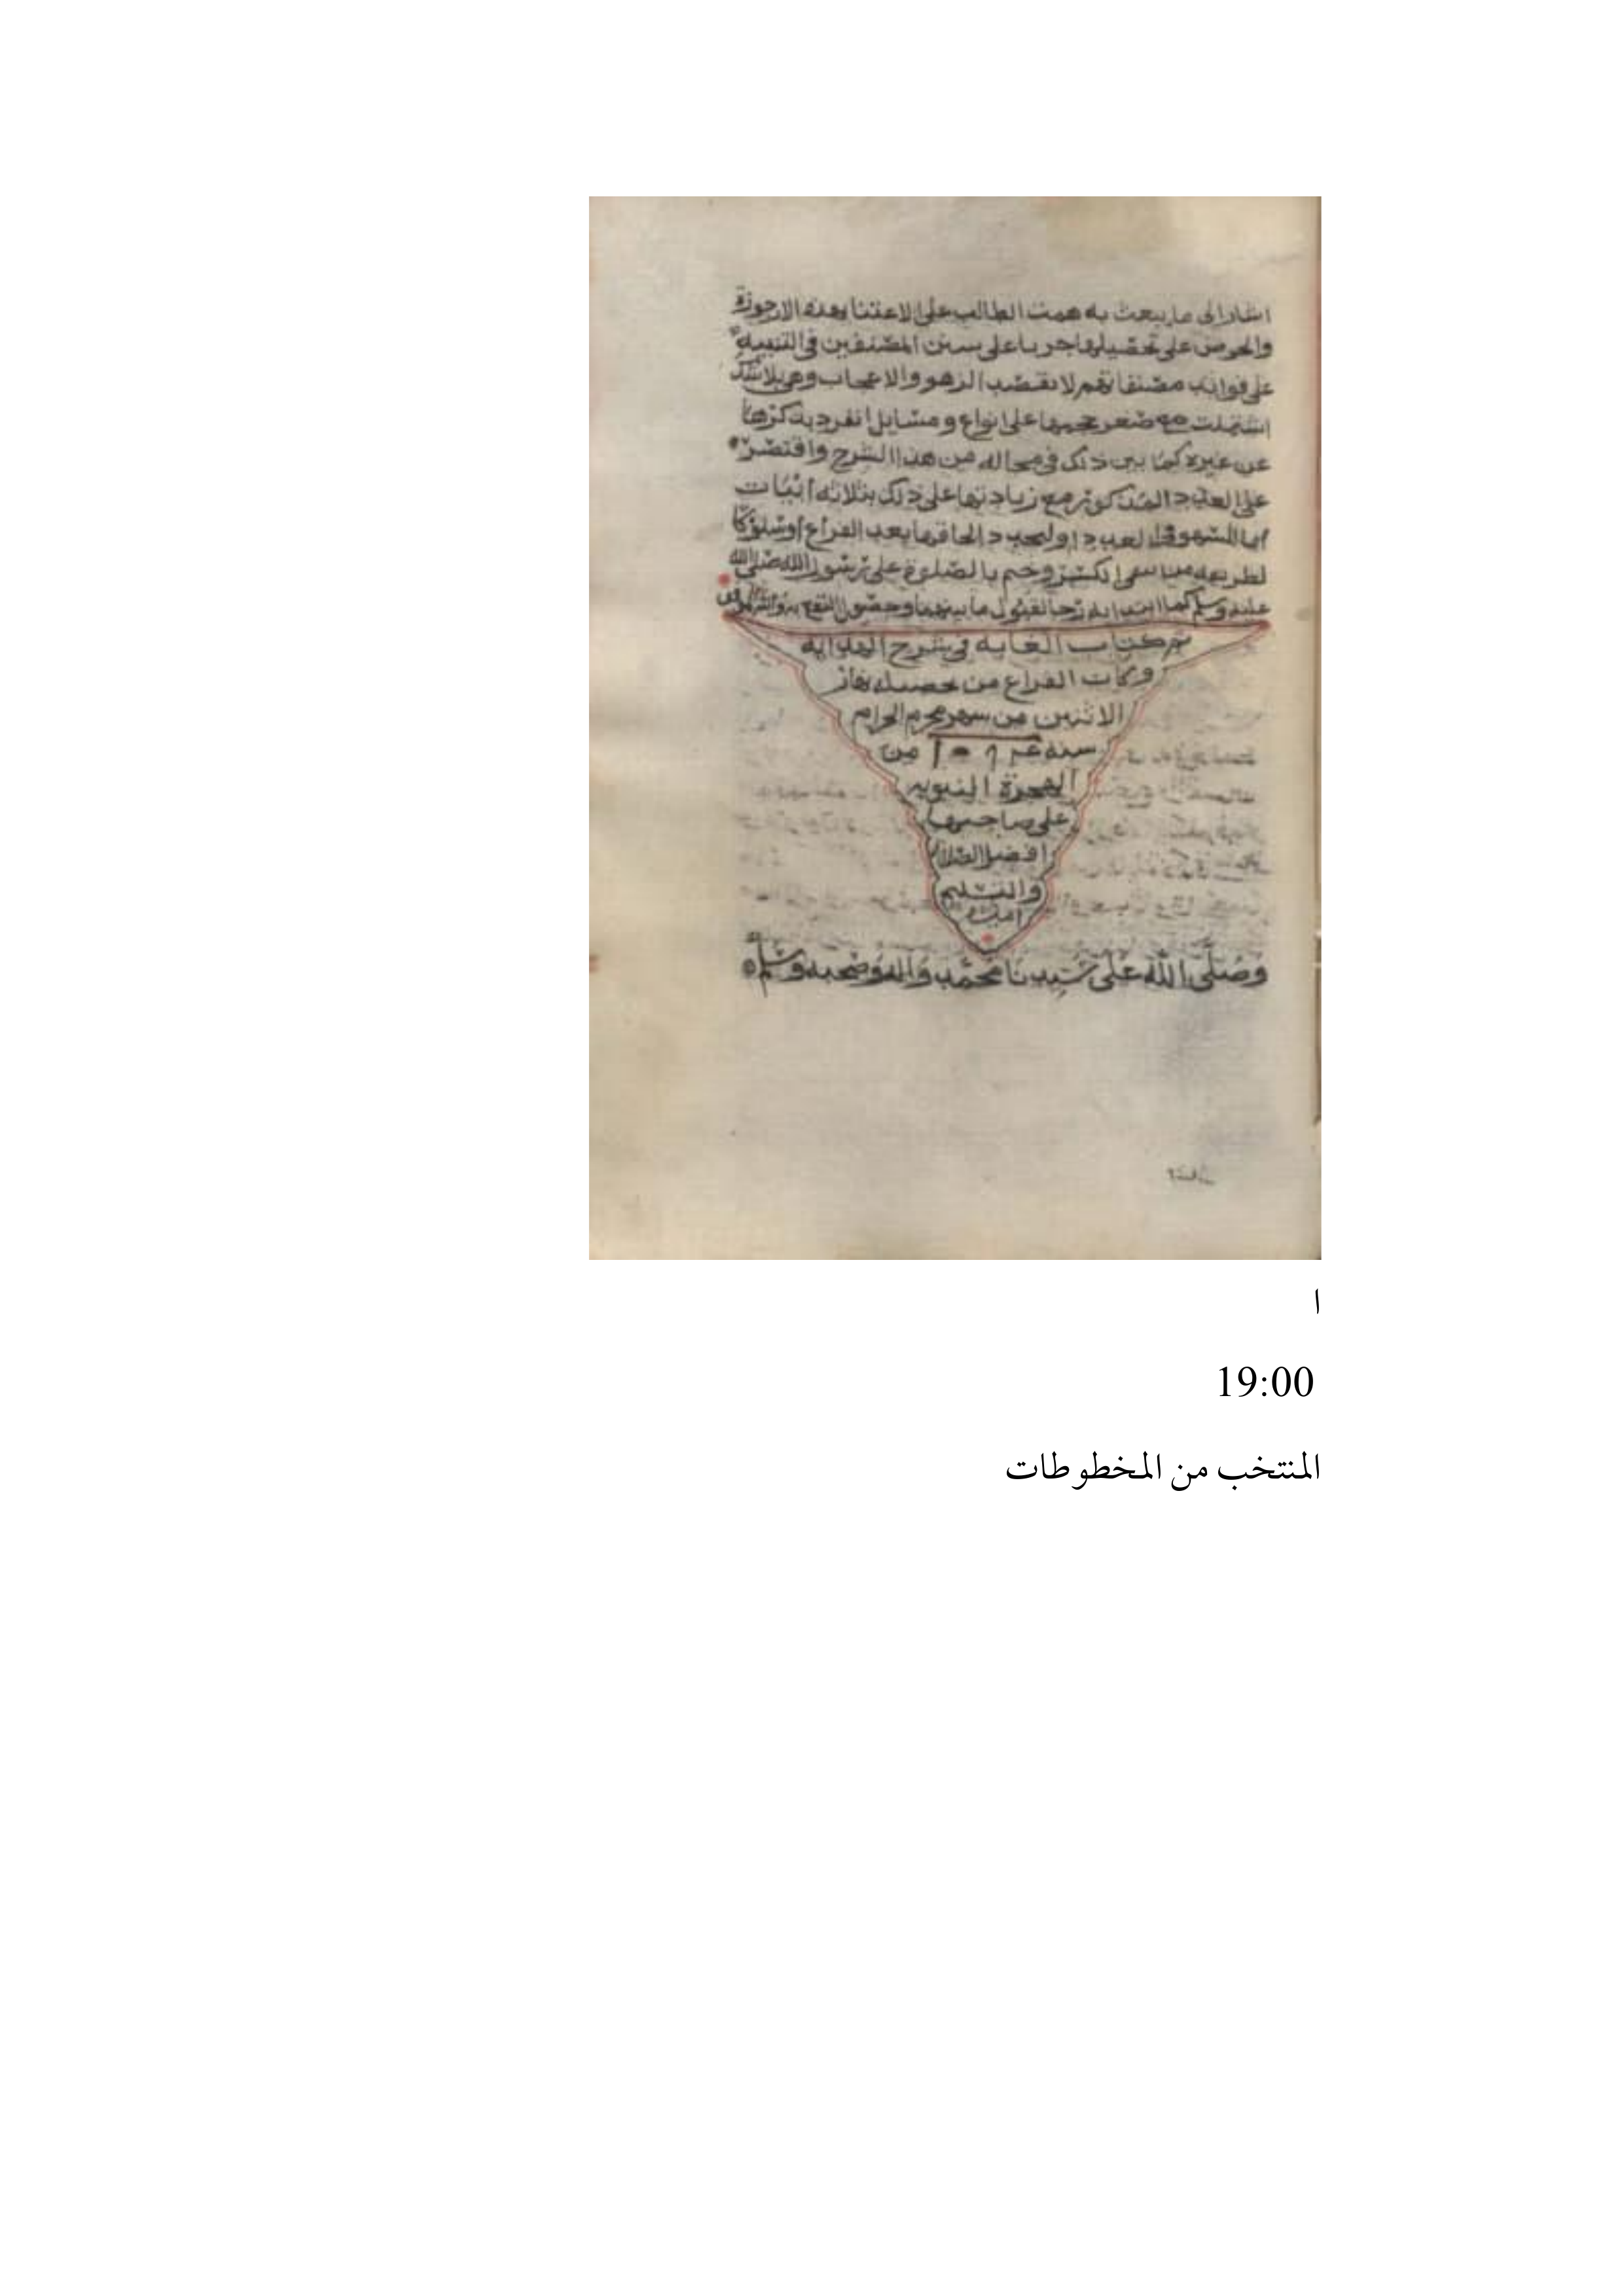 اشار الى ما يبعث به همت الطالب على الاعتنا بهذه الارجوزة
والحرص على تحصيلها جريا على سنن المصنفين في التنبيه
على فوائد مصنفاتهم لا بقصد الزهو والاعجاب وهي بلا شك
اشتملت مع صغر حجمها على انواع ومسايل انفرد بذكرها
عن غيره كما بين ذلك في محاله من هذا الشرح واقتصر
على العدد المذكور مع زيادتها على ذلك بثلاثه ابيات
اما للسهو في العدد او لتجدد الحاقها بعد الفراغ او سلوكا
لطريقه من الكسر وختم بالصلوة على رسول الله صلى الله
عليه وسلم كما ابتدا به رجا لقبول ما بينهما وحصول النفع به
تم كتاب الغايه في شرح الهدايه
وكان الفراغ من تحصيله نهار
الاثنين من شهر محرم الحرام
سنه من
الهجرة النبويه
على صاحبها
افضل الصلاة
والتسليم
امين
وصلى الله على سيدنا محمد واله وصحبه وسلم
ا
19:00
المنتخب من المخطوطات